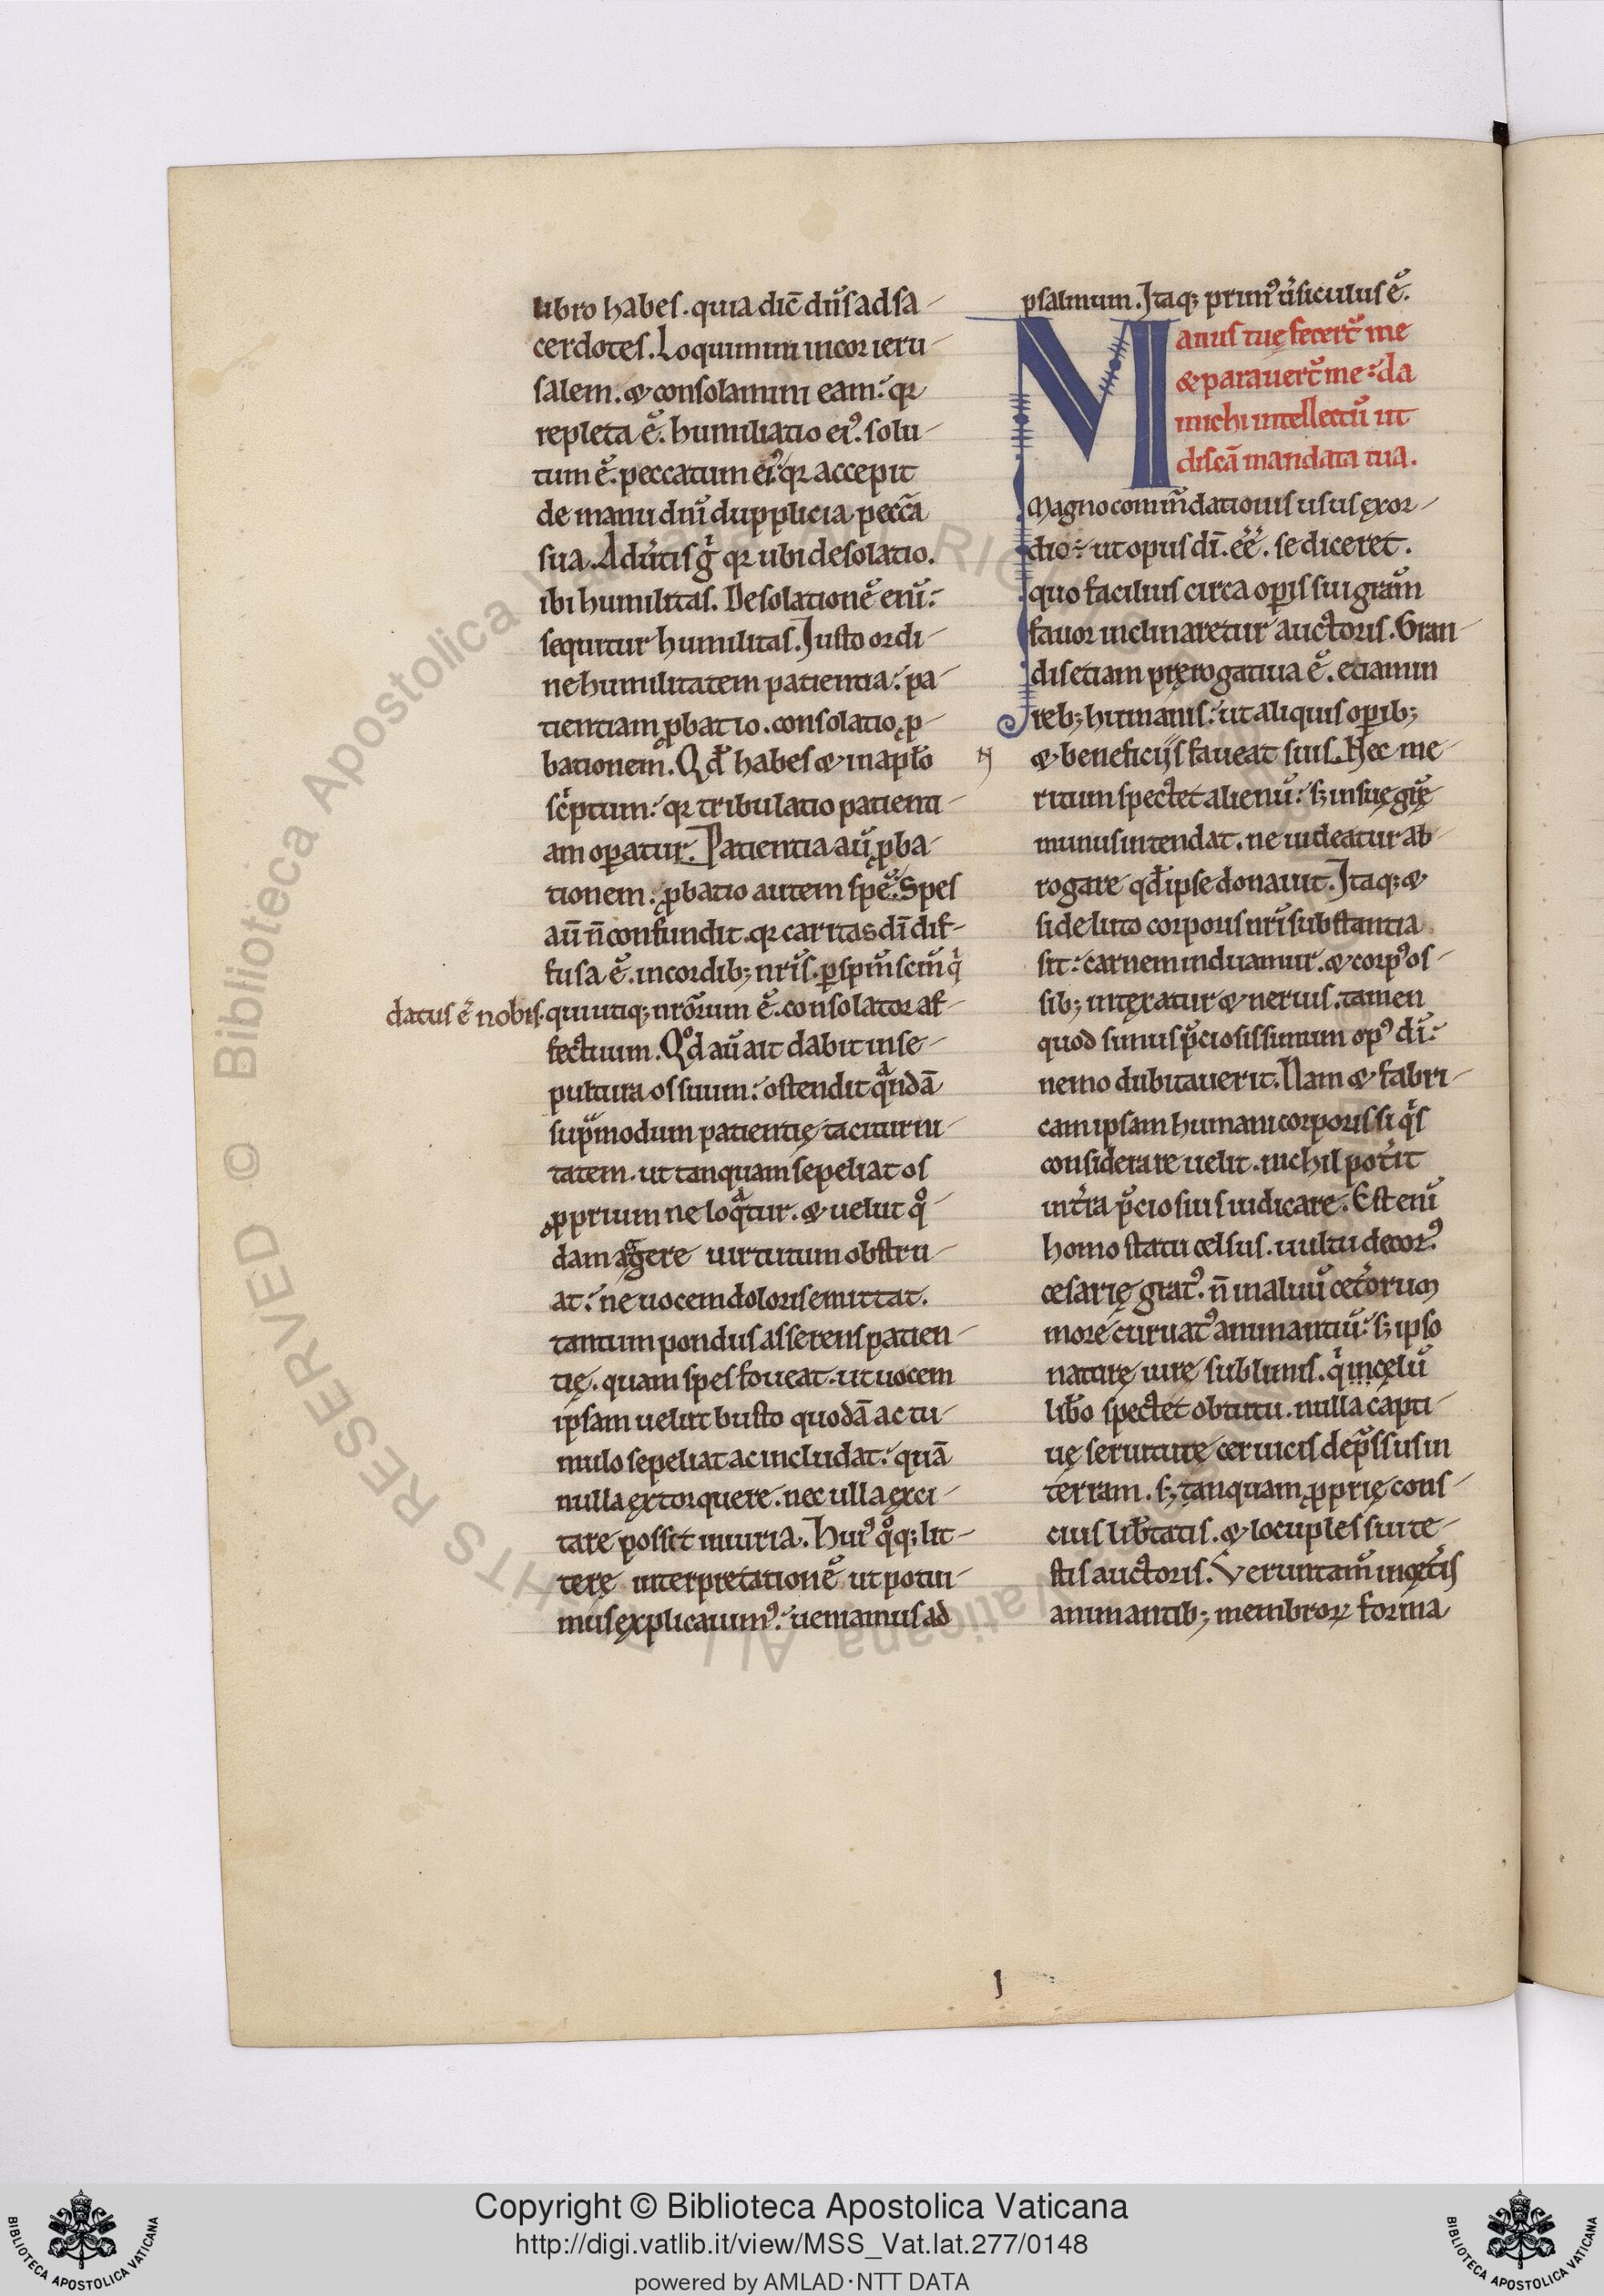 libro habes. quia dic̄ dn̄s ad sa-
cerdotes. Loquimini in cor ieru-
salem. & consolamini eam: qr
repleta ē. humiliatio ei᾿. solu-
tum ē. peccatum ei᾿: qr accepit
de manu dn̄i dupplicia peccā
sua. Adu͛tis gͥ qr ubi desolatio.
ibi humilitas. Desolationē enī:
sequitur humilitas. Justo ordi-
ne humilitatem patientia: pa-
tientiam ꝓbatio. consolatio ꝓ-
bationem. Qd̄ habes & in apło
scͥptum: qr tribulatio patienti-
am oꝑatur. Patientia aū ꝓba-
tionem. ꝓbatio autem spē. Spes
aū n̄ confundit. qr caritas dī dif-
fusa ē. in cordibꝫ nrīs. ꝑ spm̄ scm̄ qͥ
datus ē nobis. qui utiqꝫ nrōrum ē. consolator af-
fectuum. Qd̊ aū ait dabit in se-
pultura os suum: ostendit qᷓndā
supͣmodum patientię taciturni-
tatem. ut tanquam sepeliat os
ꝓprium ne loqᷓtur. & uelut qͦ-
dam agͣgere uirtutum obstru-
at: ne uocem doloris emittat.
tantum pondus asserens patien-
tię. quam spes foueat. ut uocem
ipsam uelut busto quodā ac tu-
mulo sepeliat ac includat: quā
nulla extorquere. nec ulla exci-
tare possit iniuria. Hui᾿ qͦqꝫ lit-
terę interpretationē ut potui-
mus explicauim᾿: ueniamus ad
psalmum. Itaqꝫ prim᾿ u͛siculus ē.
Manus tuę fecerūt me
& parauerūt me: da
michi intellectū ut
discā mandata tua.
Magno com̄dationis usus exor-
dio: ut opus dī. eē. se diceret.
quo facilius circa oꝑis sui gram̄
fauor inclinaretur auctoris. Gran-
dis etiam pręrogatiua ē. etiam in
rebꝫ humanis: ut aliquis oꝑibꝫ
& beneficiis faueat suis. Nec me-
ritum spectet alienū: sꝫ in suę gr̄ę
munus intendat. ne uideatur ab-
rogare qd̄ ipse donauit. Itaqꝫ &
si de luto corporis nrī substantia
sit: carnem induamur. & corp᾿ os-
sibꝫ intexatur & neruis. tamen
quod simus p̄ciosissimum op᾿ dī:
nemo dubitauerit. Nam & fabri-
cam ipsam humani corporis si qͥs
considerare uelit. nichil pot͛it
int͛ra p̄ciosius iudicare. Est enī
homo statu celsus. uultu decor᾿.
cesarię grat᾿. n̄ in aluū cet͛orum
more curuat᾿ animantiū: sꝫ ipso
naturę iure sublimis. qͥ in cęlū
libͦo spectet obtutu. nulla capti-
uę seruitutę ceruicis dep̄ssus in
terram. sꝫ tanquam ꝓprię cons-
cius libͭtatis. & locuples sui te-
stis auctoris. Veruntam̄ in cęt͛is
animantibꝫ membroꝝ forma
I
Copyright © Biblioteca Apostolica Vaticana
http://digi.vatlib.it/view/MSS_Vat.lat.277/0148
powered by AMLAD·NTT DATA
BIBLIOTECA APOSTOLICA VATICANA
BIBLIOTECA APOSTOLICA VATICANA